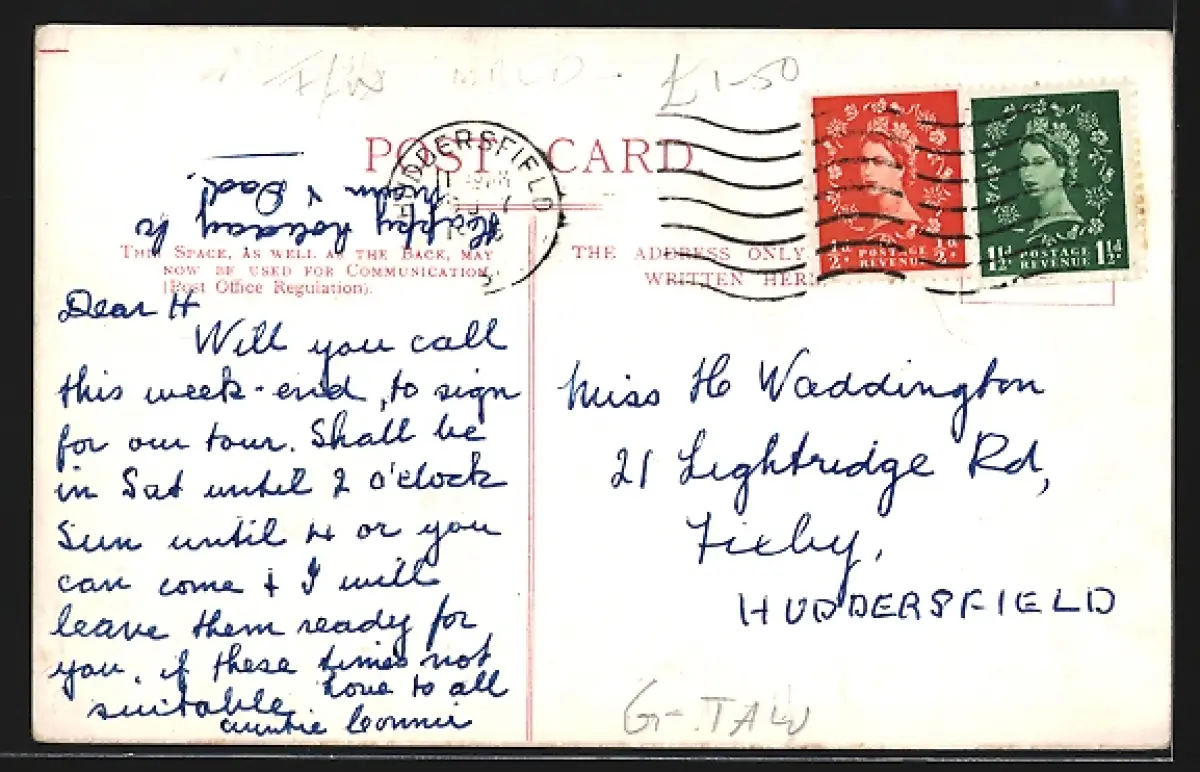 F/W
£1-50
POST CARD
HUDDERSFIELD
Happy holiday to
Mum & Dad.
THIS SPACE, AS WELL AS THE BACK, MAY
NOW BE USED FOR COMMUNICATION.
(Post Office Regulation).
Dear H
Will you call
this week-end, to sign
for our tour. Shall be
in Sat until 2 o'clock
Sun until 4 or you
can come & I will
leave them ready for
you, if these times not
suitable. Love to all
auntie Connie
THE ADDRESS ONLY
WRITTEN HERE
½d POSTAGE REVENUE ½d
1½d POSTAGE REVENUE 1½d
Miss H Waddington
21 Lightridge Rd,
Fixby,
HUDDERSFIELD
G-